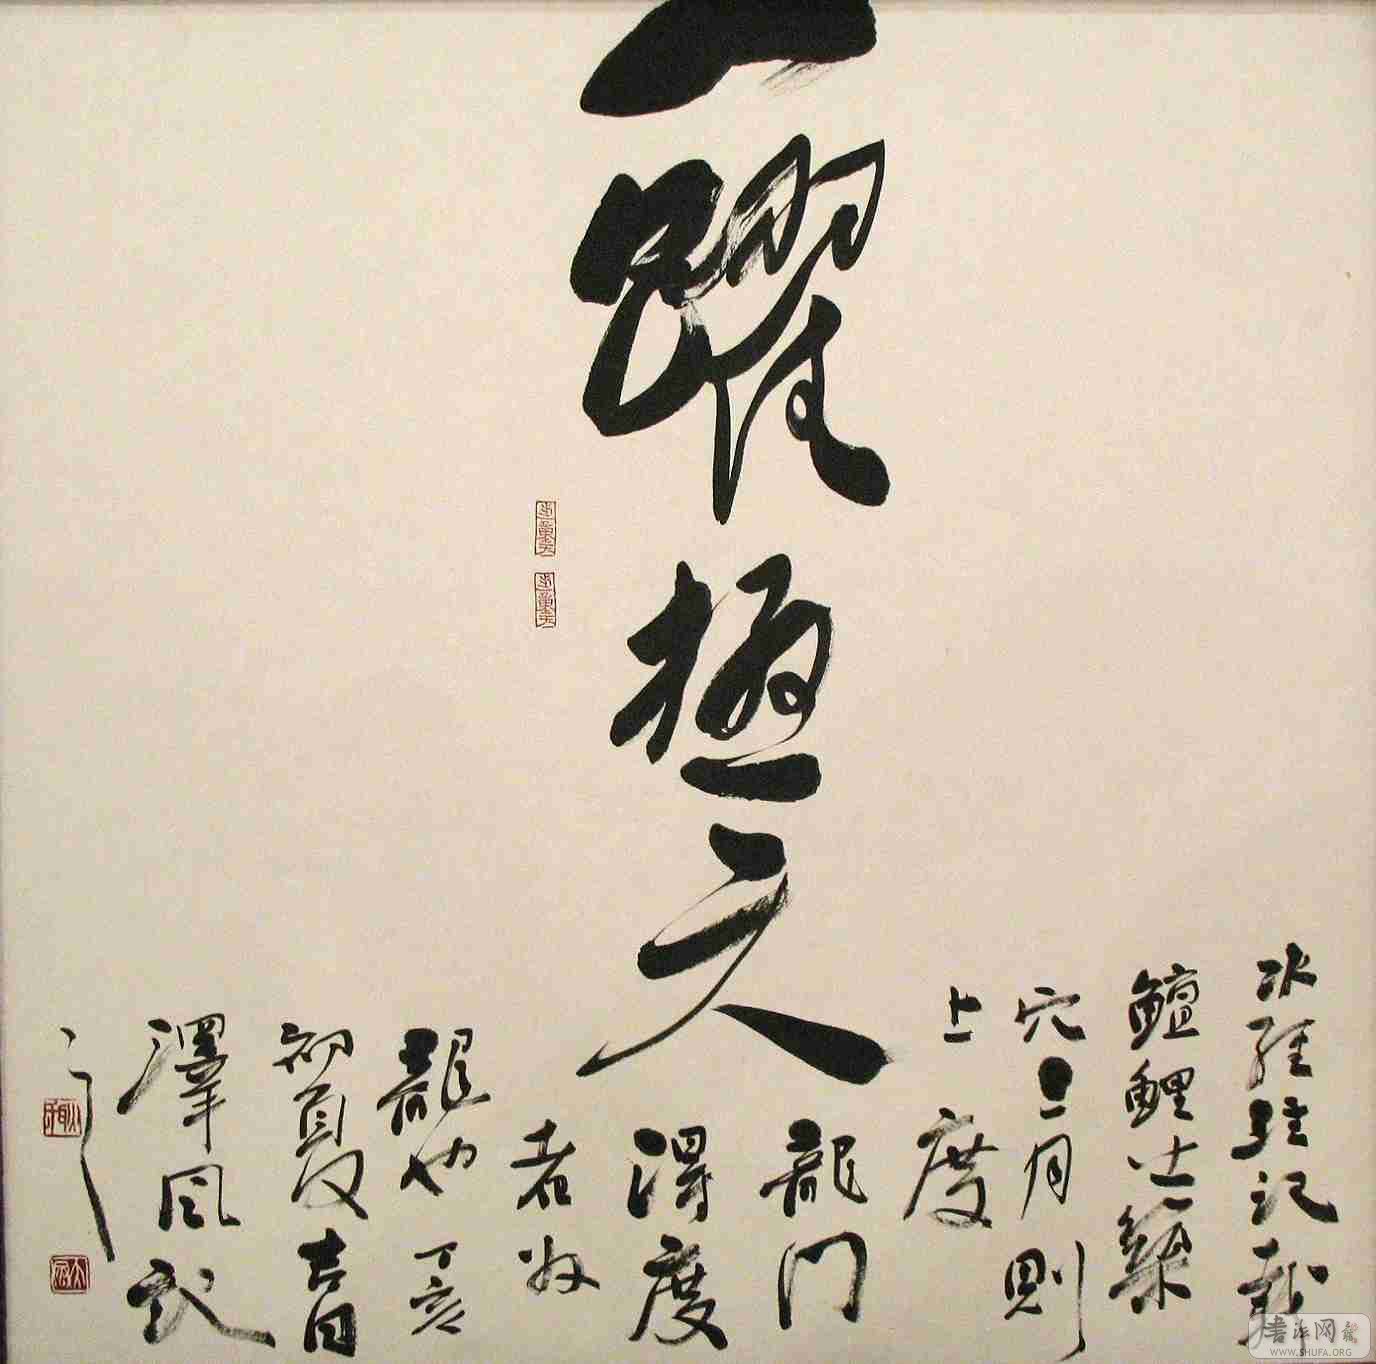 一躍極天
水經註記載
鱣鯉出鞏
穴三月則
上度
龍門
得度
者為
龍也丁亥
初夏吉日
澤風
書法网
WWW.SHUFA.ORG